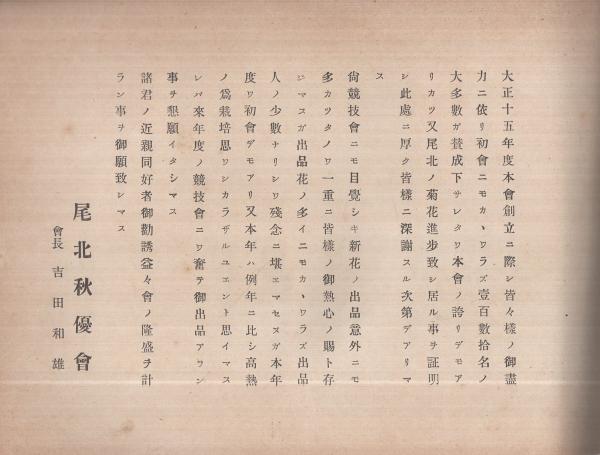 大正十五年度本會創立ニ際シ皆々樣ノ御盡
力ニ依リ初會ニモカヽワラズ壹百數拾名ノ
大多數ガ賛成下サレタワ本會ノ誇リデモア
リカツ又尾北ノ菊花進步致シ居ル事ヲ証明
シ此處ニ厚ク皆樣ニ深謝スル次第デアリマ
ス
尙競技會ニモ目覺シキ新花ノ出品意外ニモ
多カツタノワ一重ニ皆樣ノ御熱心ノ賜ト存
ジマスガ出品花ノ多イニモカヽワラズ出品
人ノ少數ナリシワ殘念ニ堪エマセヌガ本年
度ワ初會デモアリ又本年ハ例年ニ比シ高熱
ノ爲栽培思ワシカラザルユエント思イマス
レバ來年度ノ競技會ニワ奮テ御出品アラン
事ヲ懇願イタシマス
諸君ノ近親同好者御勸誘益々會ノ隆盛ヲ計
ラン事ヲ御願致シマス
尾北秋優會
會長 吉田和雄